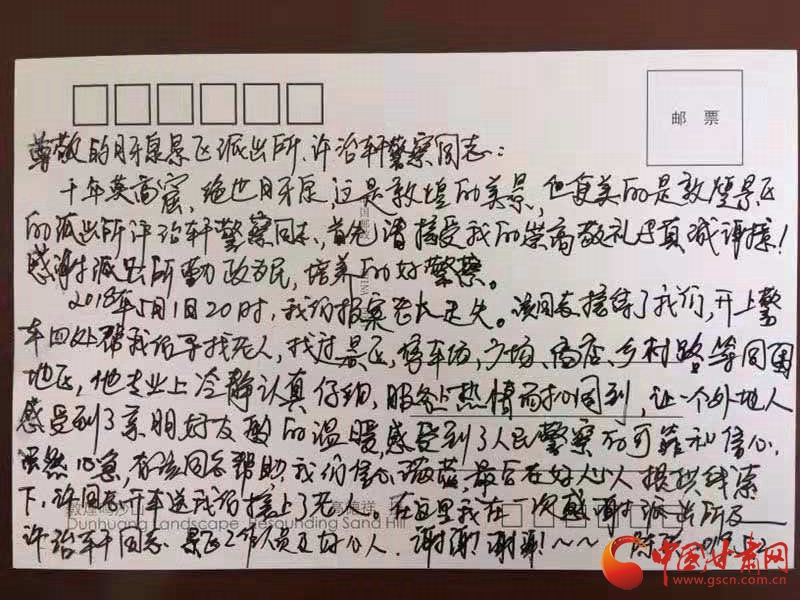 邮 票
尊敬的月牙泉景区派出所、许治轩警察同志：
千年莫高窟，绝世月牙泉，这是敦煌的美景，但更美的是敦煌景区
的派出所许治轩警察同志，首先请接受我的崇高敬礼与真诚谢样！
感谢派出所勤政为民，培养的好警察。
2018年5月1日20时，我们报案老人走失。该同志接待了我们，开上警
车四处帮我们寻找老人，找过景区，停车场、广场、商店、乡村路等周围
地区，他专业上冷静认真仔细，服务上热情而周到，让一个外地人
感受到了亲朋好友般的温暖，感受到了人民警察的可靠和信心，
虽然心急，有该同志帮助我们信心 最后在好心人提供线索
下，许同志开车送我们接上了老人。在这里我在一次感谢派出所及
敦煌鸣沙山 高德祥
Dunhuang Landscape Resounding Sand Hill
许治轩同志、景区工作人员及好心人，谢谢！谢谢！～～ 5.2
中国甘肃网
www.gscn.com.cn